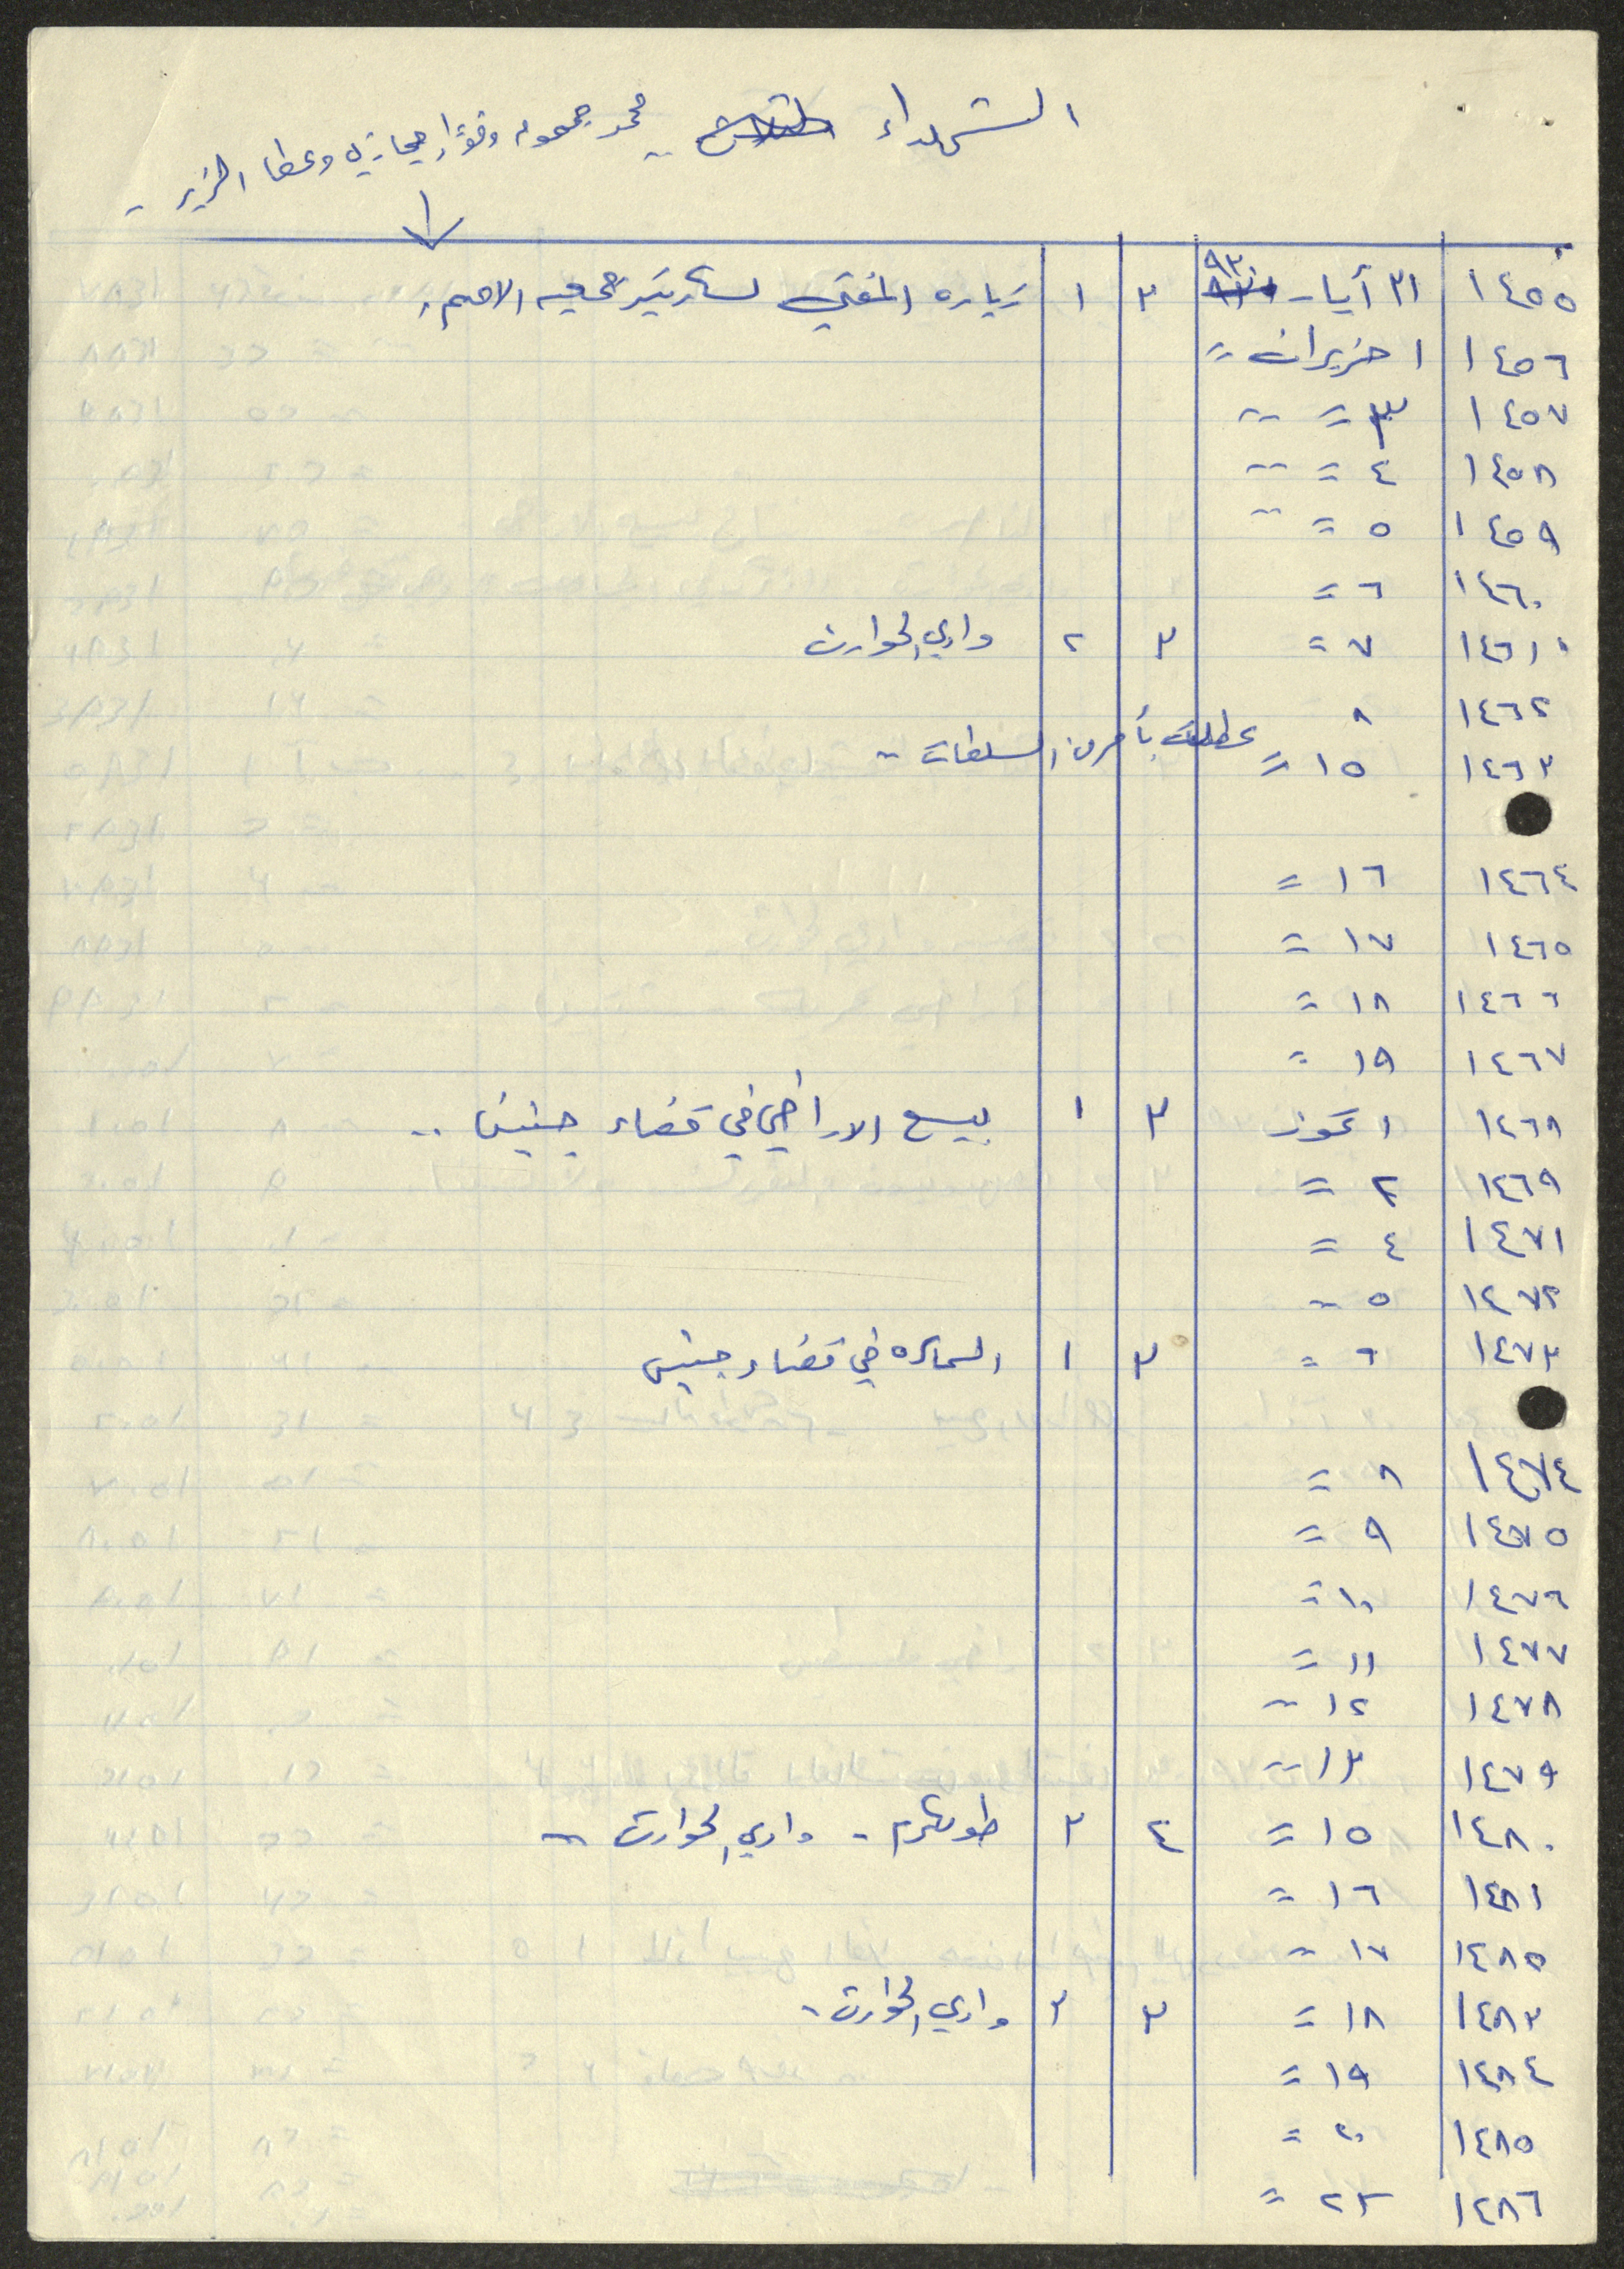 الشهداء محمد جمجوم وفؤاد حجازي وعطا الزير -
١٤٥٥ ٣١ أيار ٩٣ ٣ ١ زياره المفتي لسكرتير جمعيه الامم.
١٤٥٦ ١ حزيران =
١٤٥٧ ٣ = =
١٤٥٨ ٤ = =
١٤٥٩ ٥ = =
١٤٦٠ ٦ =
١٤٦١ ٧ = ٣ ٢ وادي الحوارث
١٤٦٢ ٨ عطلت بأمر من السلطات -
١٤٦٣ ١٥ =
١٤٦٤ ١٦ =
١٤٦٥ ١٧ =
١٤٦٦ ١٨ =
١٤٦٧ ١٩ =
١٤٦٨ ١ تموز ٣ ١ بيع الاراضي في قضاء جنين ..
١٤٦٩ ٢ =
١٤٧١ ٤ =
١٤٧٢ ٥ =
١٤٧٣ ٦ = ٣ ١ السماسره في قضاء جنين
١٤٧٤ ٨ =
١٤٧٥ ٩ =
١٤٧٦ ١٠ =
١٤٧٧ ١١ =
١٤٧٨ ١٢ =
١٤٧٩ ١٣ =
١٤٨٠ ١٥ = ٤ ٣ طولكرم - وادي الحوارث -
١٤٨١ ١٦ =
١٤٨٥ ١٧ =
١٤٨٣ ١٨ = ٣ ٣ وادي الحوارث -
١٤٨٤ ١٩ =
١٤٨٥ ٢٠ =
١٤٨٦ ٢٣ =